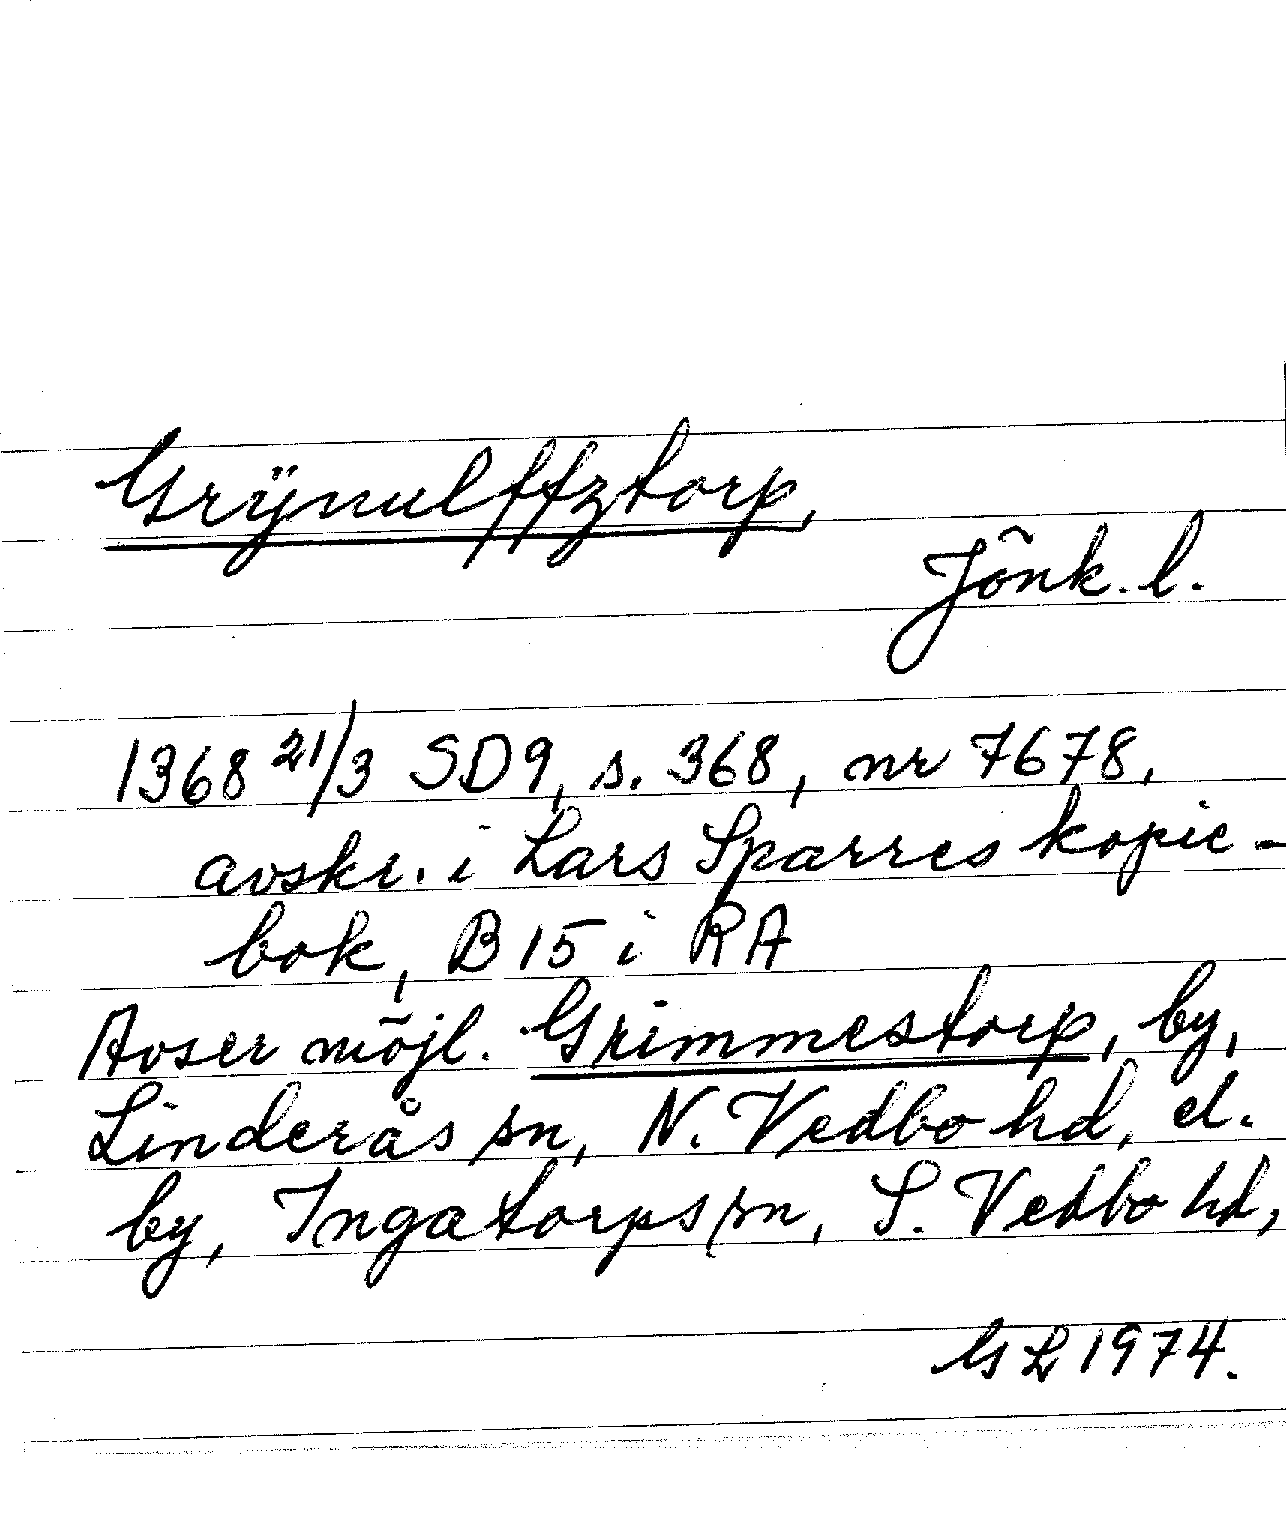 Grÿnulffztorp,
Jönk. l.
1368 21/3 SD9, s. 368, nr 7678,
avskr. i Lars Sparres kopie-
bok, B 15 i RA
Avser möjl. Grimmestorp, by,
Linderås sn, N. Vedbo hd, el.
by, Ingatorps sn, S. Vedbo hd,
GL 1974.